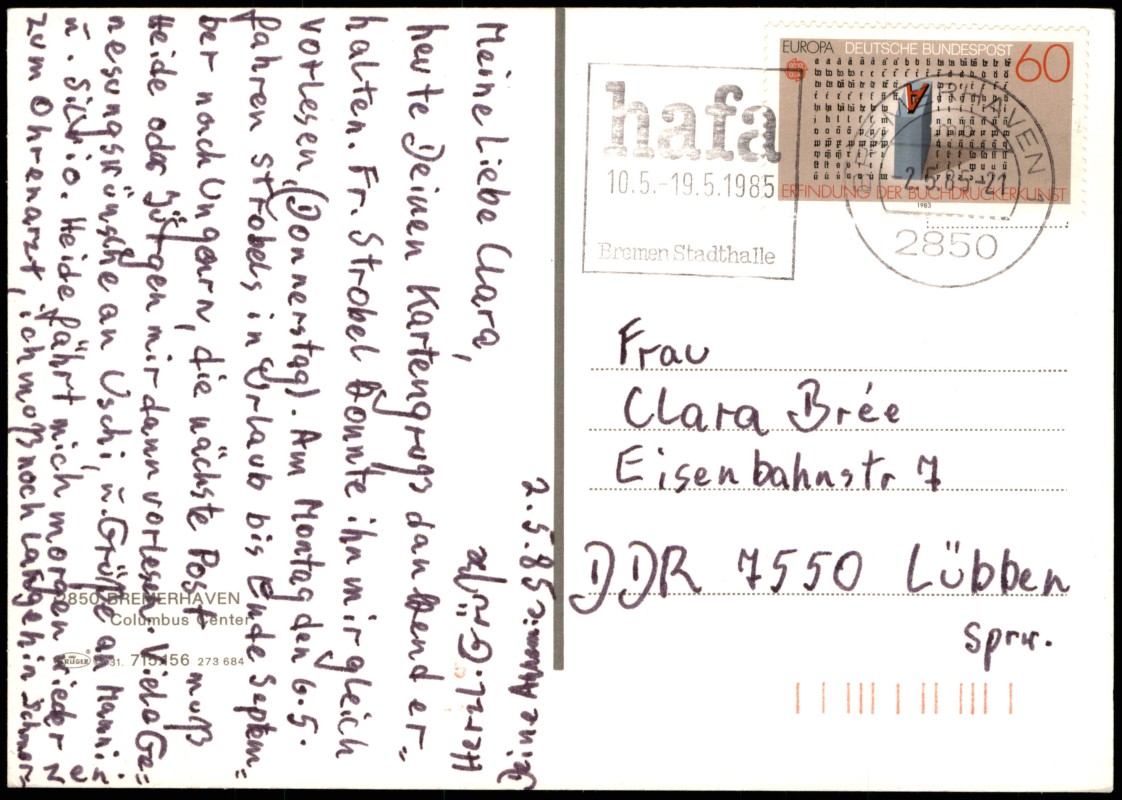 EUROPA DEUTSCHE BUNDESPOST 60
ERFINDUNG DER BUCHDRUCKERKUNST
1983
hafa
10.5.-19.5.1985
Bremen Stadthalle
-2.5.85-21
2850
2.5.85
Meine Liebe Clara,
heute Deinen Kartengruß dankend er=
halten. Fr. Strobel konnte ihn mir gleich
vorlesen (Donnerstag). Am Montag den 6.5.
fahren Strobels in Urlaub bis Ende Septem=
ber nach Ungarn, die nächste Post muß
Heide oder Jürgen mir dann vorlesen. Viele Ge=
nesungswünsche an Uschi, u. Grüße an Manni
u. Silvio. Heide fährt mich morgen wieder
zum Ohrenarzt, ich muß noch hin Schmer=
zen
Herzl. Grüße
Deine Annemie
2850 BREMERHAVEN
Columbus Center
KRÜGER 931. 715/156 273 684
Frau
Clara Brée
Eisenbahnstr 7
DDR 7550 Lübben
Sprw.